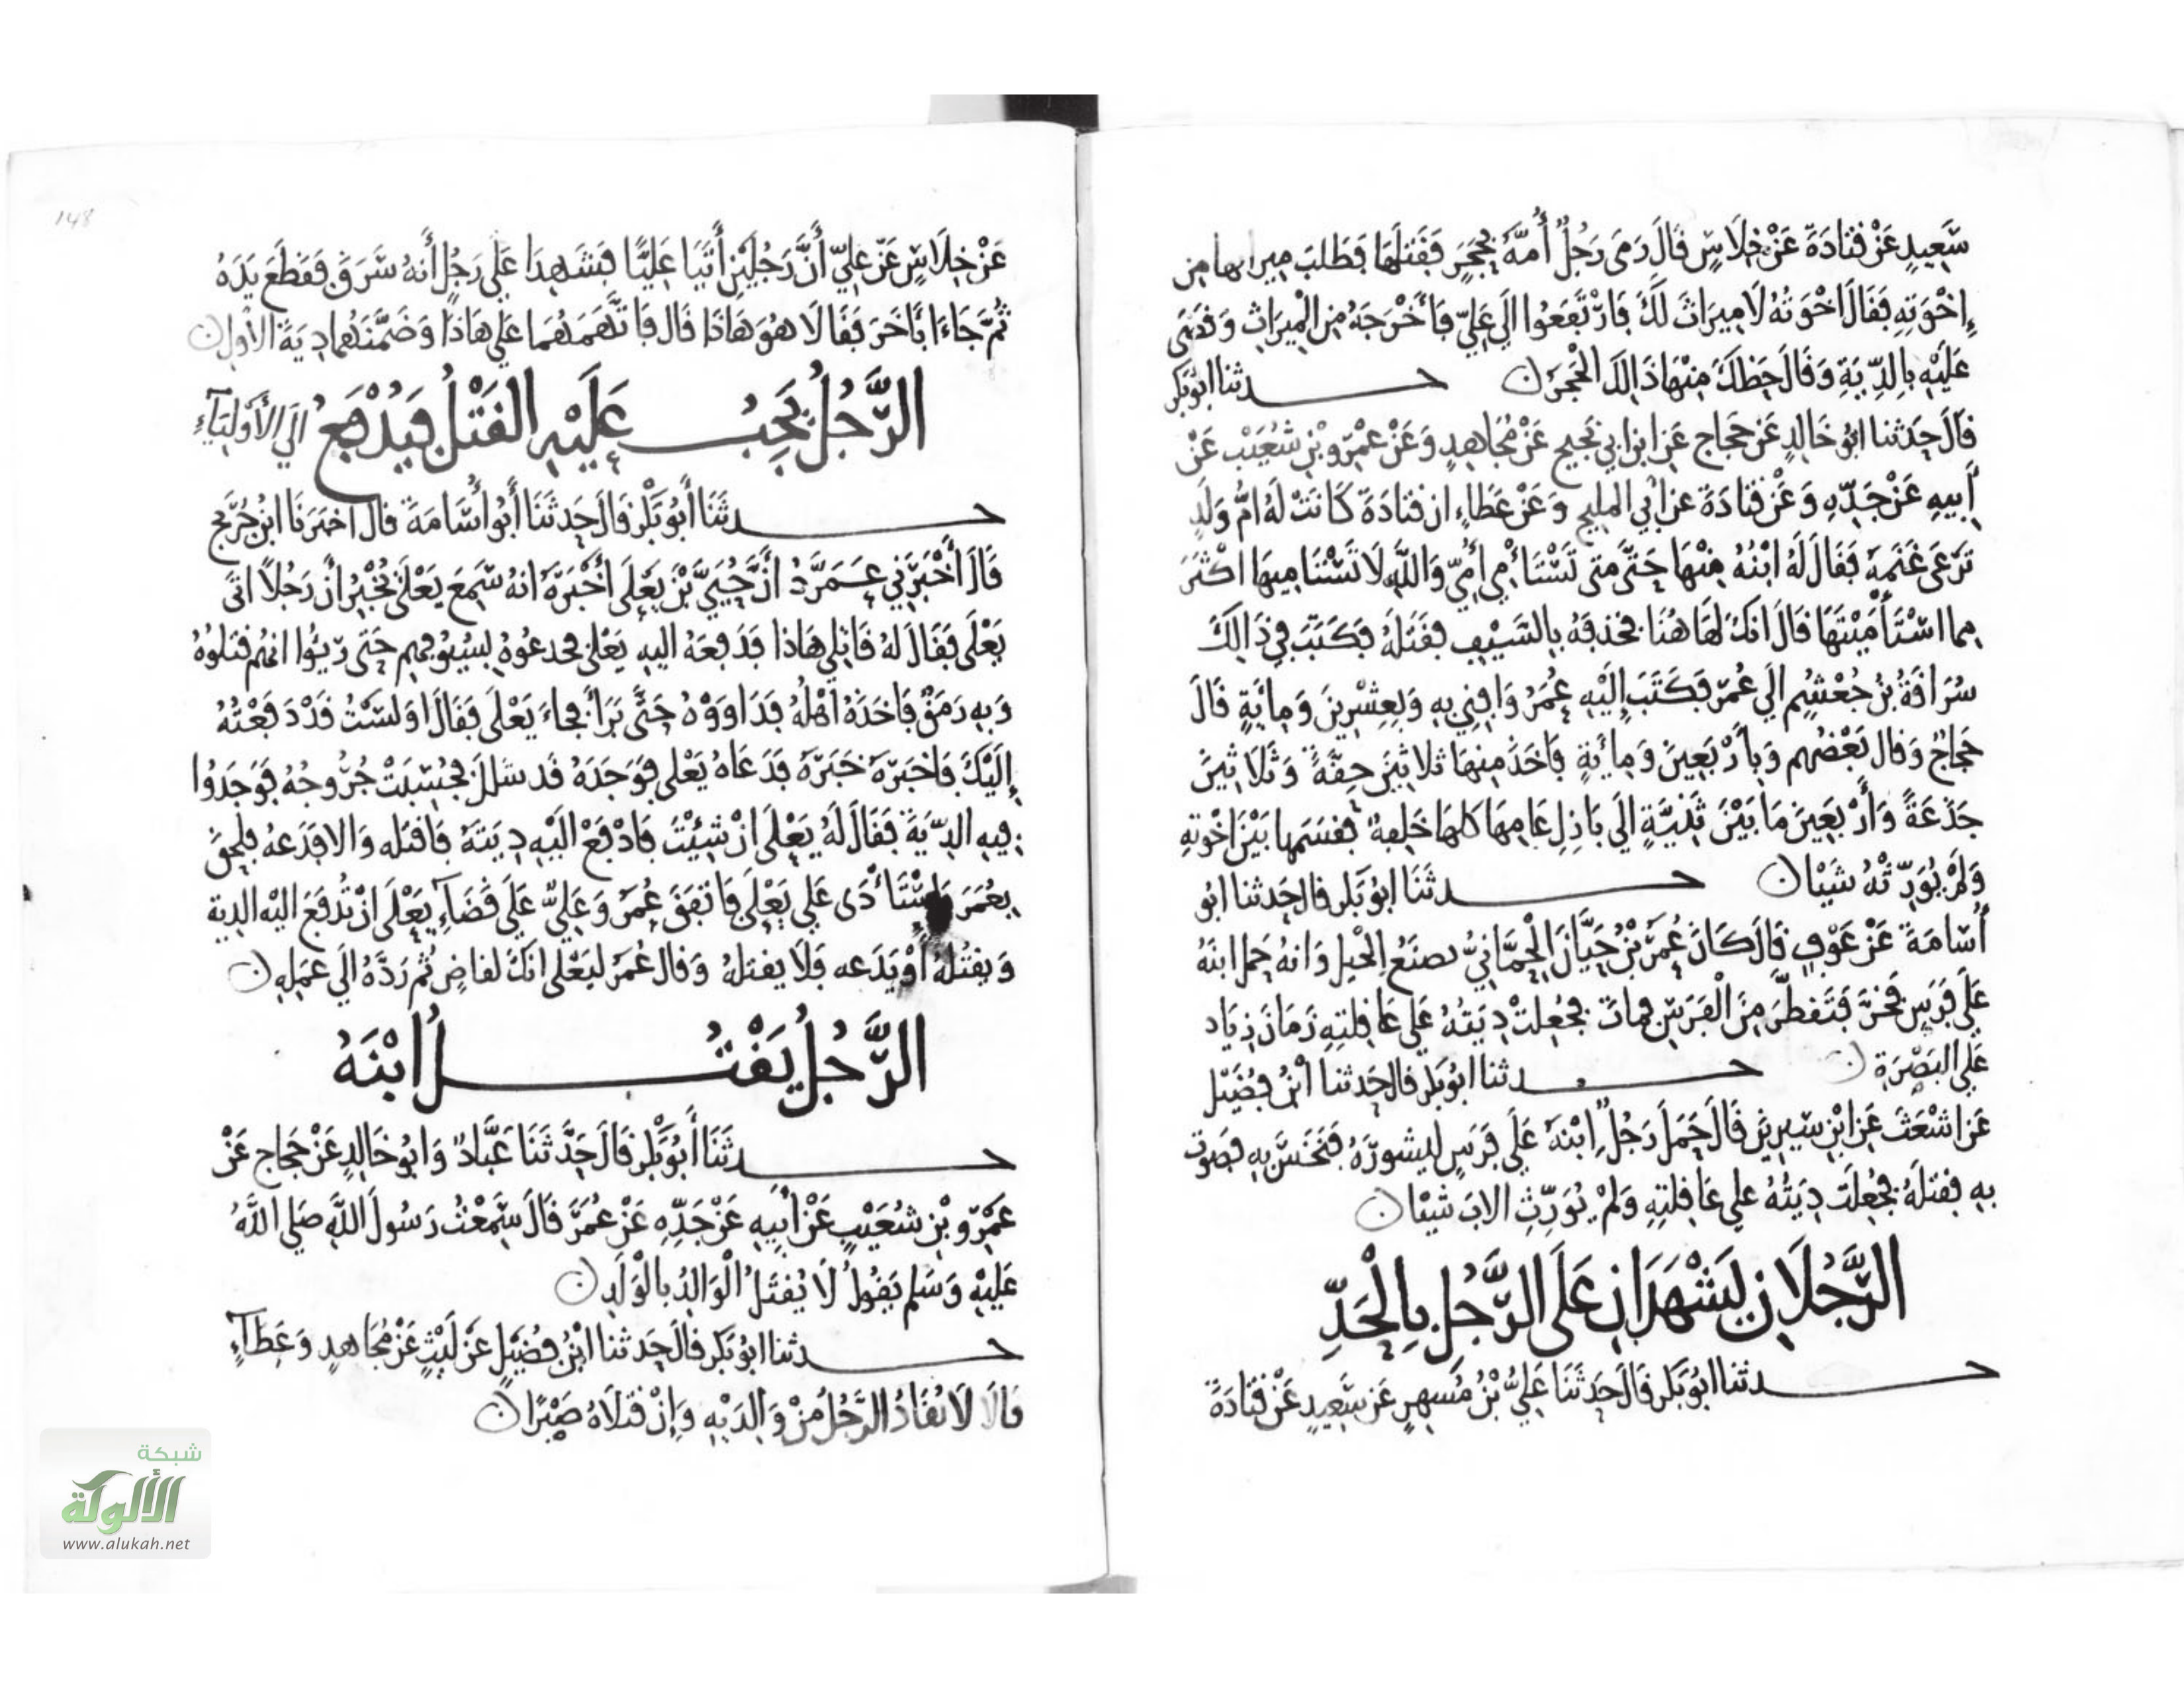 سَعِيدٍ عَنْ قَتَادَةَ عَنْ خِلَاسٍ قَالَ رَمَى رَجُلٌ أُمَّهُ بِحَجَرٍ فَقَتَلَهَا فَطَلَبَ ميراثها مِن
إِخْوَتِهِ فَقَالَ اخْوَتُهُ لَا مِيرَاثَ لَكَ فَارْتَفَعُوا الَى عَلِيّ فَأَخْرَجَهُ مِنَ الْمِيرَاثِ وَقَضَى
عَلَيْهِ بِالدِّيَةِ وَقَالَ حَظُكَ مِنْهَا ذَالِكَ الْحَجَرُ حدثنا ابُو بَكر
قالَ حَدثنا ابُو خَالدٍ عَن حَجاج عَنِ ابن ابي نَجيحٍ عَنْ مُجَاهِدٍ وَعَنْ عَمْرو بْنِ شُعَيْب عَنْ
أَبِيهِ عَنْ جَدِّهِ وَعَنْ قَتَادَةَ عن ابي المليح وَعَنْ عَطَاءٍ ان قتادَةَ كَانَتْ لَهُ امُّ وَلَدٍ
تَرْعَى غَنَمَهُ فَقَالَ لَهُ ابْنُهُ مِنْهَا حَتَّى مَتى تَسْتَأْمِي أُمِّي وَاللَّهِ لَا تَسْتَامِيهَا اكْثَرَ
مِما اسْتَأْمَيْتَهَا قَالَ انكَ لَهَاهُنَا فخذفَهُ بِالسَّيْفِ فَقَتَلَهُ فَكَتَبَ فِي ذَالِكَ
سُرَاقَةُ بْنُ جُعْشُمٍ الَى عُمَرَ فَكَتَبَ إِلَيْهِ عُمَرُ وَافِنِي بِهِ وَبِعِشْرِينَ وَمِايَةٍ قَالَ
حَجاجٌ وَقال بَعْضُهم وَبِأَرْبَعِينَ وَمِائَةٍ فَاخَذَ مِنهَا ثَلَاثِينَ حِقَّةً وَثَلَاثِينَ
جَذَعَةً وَأَرْبَعِينَ مَا بَيْنَ ثَنِيَّةٍ الَى بَازِلِ عَامِهَا كلهَا خَلِفةٌ فقسَمها بَيْنَ اخْوتِهِ
وَلَمْ يُوَرِّثْهُ شَيْئا حدثَنَا ابُو بَكر قال حَدثنا ابُو
أُسَامَةَ عَنْ عَوْفٍ قَالَ كَانَ عُمَرُ بْنُ حَيَّانَ الْحِمَّانِيُّ يصنَعُ الخَيل وَانهُ حَمل ابنَهُ
عَلَى فَرَسٍ فَخَرَّ فَتَقطَّرَ مِنَ الْفَرَسِ فمات فَجُعِلتْ دِيَتُهُ عَلى عَاقلتِهِ زَمَانَ زِيَاد
عَلى البَصْرَةِ حدثنا ابُو بَكر قال حَدثنا ابْنُ فُضَيْل
عَن اشْعَثَ عَنِ ابْنِ سِيرِينَ قَالَ حَمَلَ رَجُلٌ ابْنَهُ عَلَى فَرَسٍ ليشورَهُ فَنَخَسَ بِهِ فصَوت
بِهِ فقتلَهُ فَجُعِلَت دِيَتُهُ عَلى عَاقلتِهِ وَلَمْ يُوَرِّثِ الابَ شَيْئا
الرَّجُلَانِ يَشْهَدَانِ عَلَى الرَّجُلِ بِالْحَدِّ
حدثنا ابُو بَكر قَالَ حَدثَنَا عَلِيُّ بْنُ مُسهِرٍ عَن سَعِيدٍ عَنْ قَتَادَةَ
148
عَنْ خِلَاسٍ عَنْ عَلِيّ أَنَّ رَجُلَيْنِ أَتَيَا عَلِيًّا فَشَهِدَا عَلَى رَجُلٍ أَنهُ سَرَقَ فَقَطَعَ يَدَهُ
ثُمَّ جَاءَا بَآخَرَ فَقَالَا هُوَ هَاذَا قَالَ فَاتَّهَمَهُمَا عَلي هَاذَا وَضَمَّنَهُما دِيَةَ الاول
الرَّجُلُ يَجِبُ عَلَيْهِ القَتْلُ فَيُدْفَعُ الي الأَوْلِيَآءِ
حدثَنَا أَبُو بَكْرٍ قَالَ حَدثَنَا أَبُو أُسَامَةَ قال اخبَرَنَا ابْنُ جُرَيج
قَالَ أَخْبَرَنِي عَمرٌو أَنَّ حُيَيَّ بْنَ يَعْلَى أَخْبَرَهُ انهُ سَمِعَ يَعْلَى يُخْبِرُ أنَّ رَجُلاً اتَى
يَعْلَى فَقَالَ لهُ قَاتِلي هَاذا فَدَفعَهُ اليهِ يَعْلى فجدعُوهُ بِسُيُوفِهِم حَتَى رَئوا انهُم قتلُوُهُ
وَبِهِ رَمَقٌ فَاخَذَهُ اهْلُهُ فَدَاوَوْهُ حَتَّى بَرَأَ فجاءَ يَعْلَى فَقَالَ اوَلسْتُ قَدْ دَفَعْتُهُ
إِلَيْكَ فَاخبَرَهُ خَبَرَهُ فَدَعَاهُ يَعْلى فوَجَدَهُ قد شلل فَحُسِبَتْ جُرُوحُهُ فَوَجَدُوا
فِيهِ الدِّيَةَ فَقَالَ لَهُ يَعْلَى انْ شِئْتَ فَادْفَعْ الَيْهِ دِيَتَهُ وَاقتله وَالا فَدَعهُ فلحِقَ
بِعُمَرَ فَاسْتَأْدَى عَلي يَعْلَى فَاتفَقَ عُمَرُ وَعَلِيٌّ عَلَى قَضَآءِ يَعْلَى انْ تُدفَعَ اليْه الديةَ
وَيقتُلهُ أَوْ يَدَعه فَلا يقتلهُ وَقال عُمَرُ ليَعْلى انكَ لقاضٍ ثُم رَدَّهُ الَي عَمَلِهِ
الرَّجُلُ يَقْتُلُ ابْنَهُ
حدثَنَا أَبُو بَكْرٍ قَالَ حَدَّثَنَا عَبَّادٌ وَابُو خَالِدٍ عَنْ حَجاجٍ عَنْ
عَمْرِو بْنِ شُعَيْبٍ عَنْ أَبِيهِ عَنْ جَدِّهِ عَنْ عُمَرَ قَالَ سَمِعْتُ رَسُولَ اللَّهِ صَلي اللَّهُ
عَلَيْهِ وَسَلم يَقُولُ لَا يُقتَلُ الْوَالِدُ بالْوَلَدِ
حدثنا ابُو بَكر قالَ حَدثنا ابْنُ فُضَيْلٍ عَنْ لَيْثٍ عَنْ مُجَاهدٍ وَعَطآءٍ
قَالَا لَا يُقَادُ الرَّجُلُ مِنْ وَالِدَيْهِ وَإِنْ قَتَلَاهُ صَبْرًا
شبكة
الألوكة
www.alukah.net